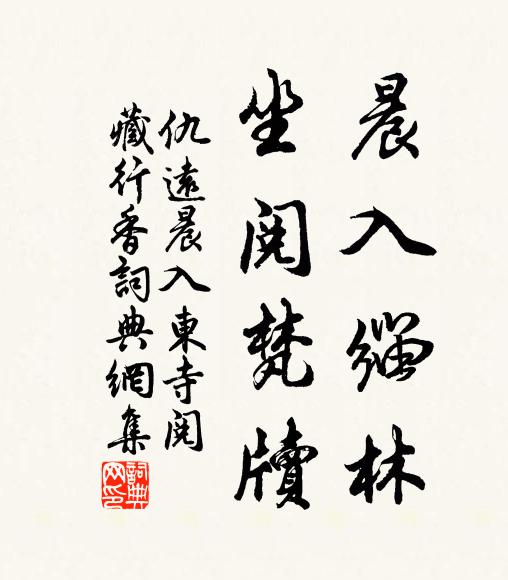 晨入緇林
坐閱梵牘
仇遠晨入東寺閱
藏行香詞典網集
詞典網印